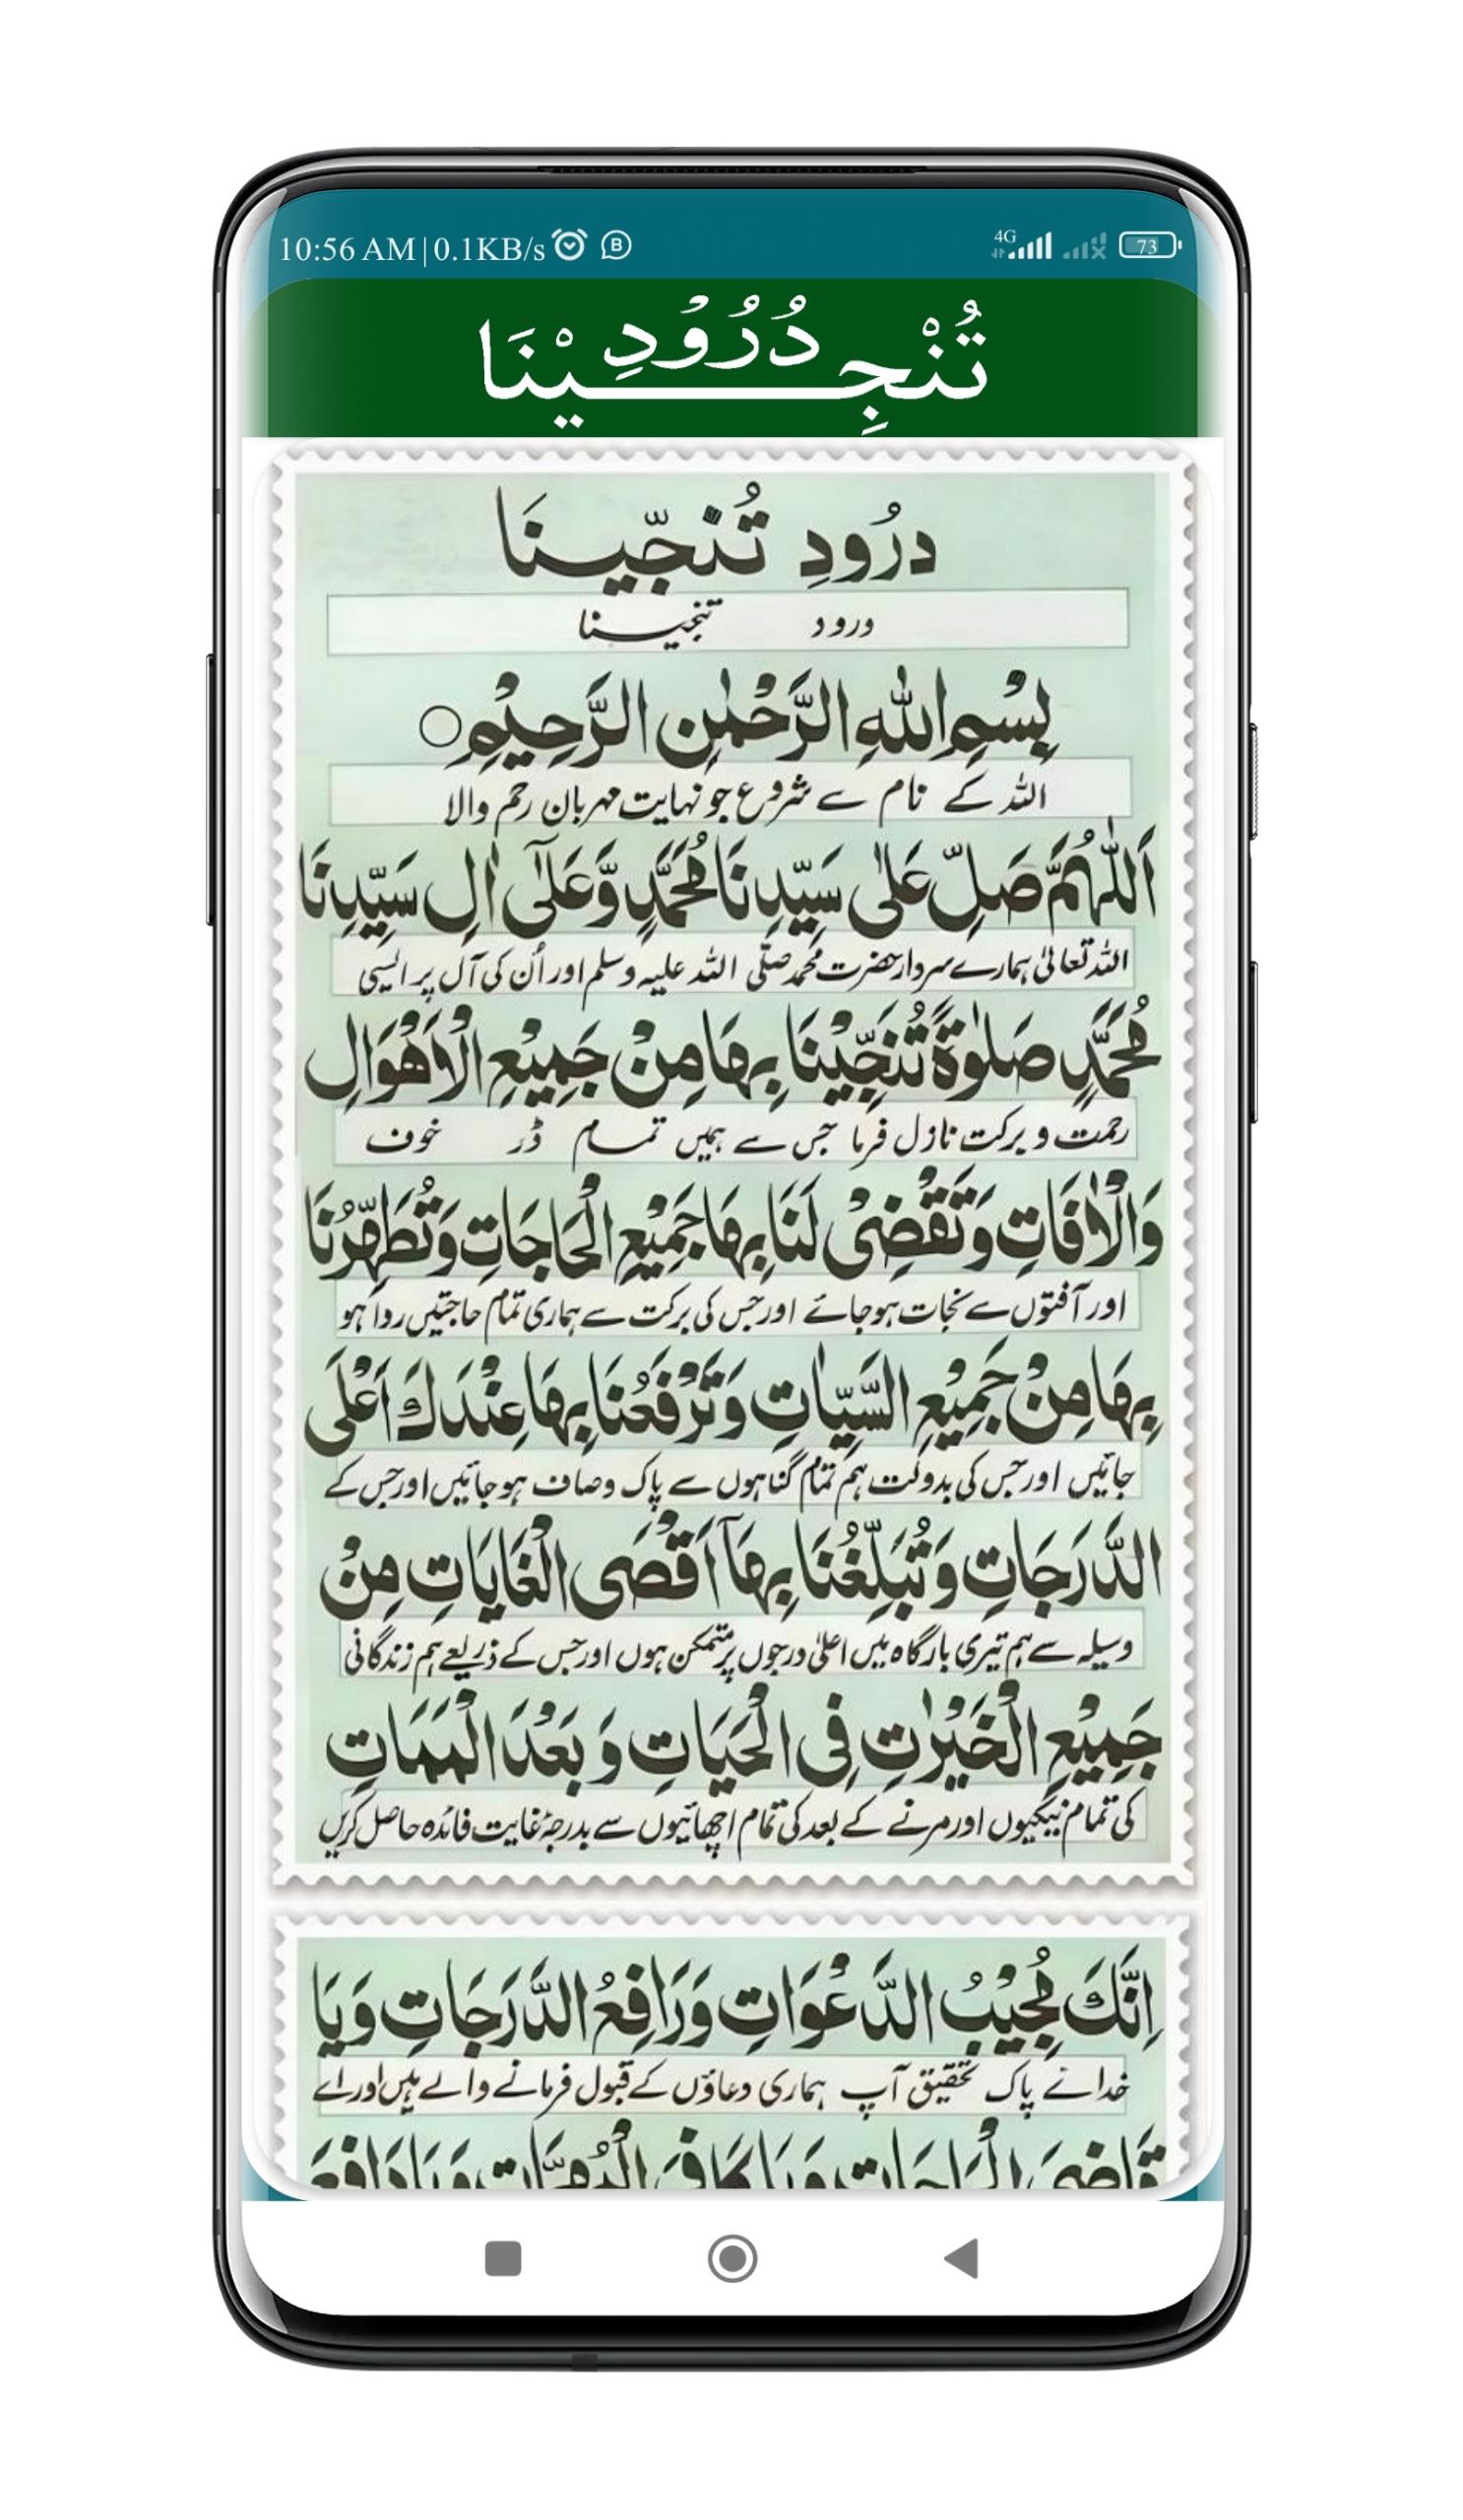 10:56 AM|0.1KB/s
4G 73
دُرُوْدِ تُنْجِيْنَا
درُودِ تُنجّینَا
درود تنجینا
بِسْمِ اللّٰهِ الرَّحْمٰنِ الرَّحِيْمِ○
اللہ کے نام سے شروع جو نہایت مہربان رحم والا
اَللّٰهُمَّ صَلِّ عَلٰى سَيِّدِنَا مُحَمَّدٍ وَّعَلٰٓى اٰلِ سَيِّدِنَا
اللہ تعالیٰ ہمارے سردار حضرت محمد صلّی اللہ علیہ وسلم اور اُن کی آل پر ایسی
مُحَمَّدٍ صَلٰوةً تُنَجِّيْنَا بِهَا مِنْ جَمِيْعِ الْاَهْوَالِ
رحمت و برکت نازل فرما جس سے ہمیں تمام ڈر خوف
وَالْاٰفَاتِ وَتَقْضِىْ لَنَا بِهَا جَمِيْعِ الْحَاجَاتِ وَتُطَهِّرُنَا
اور آفتوں سے نجات ہو جائے اور جس کی برکت سے ہماری تمام حاجتیں روا ہو
بِهَا مِنْ جَمِيْعِ السَّيِّاٰتِ وَتَرْفَعُنَا بِهَا عِنْدَكَ اَعْلَى
جائیں اور جس کی بدولت ہم تمام گناہوں سے پاک وصاف ہو جائیں اور جس کے
الدَّرَجَاتِ وَتُبَلِّغُنَا بِهَآ اَقْصَى الْغَايَاتِ مِنْ
وسیلہ سے ہم تیری بارگاہ میں اعلیٰ درجوں پر متمکن ہوں اور جس کے ذریعے ہم زندگانی
جَمِيْعِ الْخَيْرٰتِ فِى الْحَيَاتِ وَبَعْدَ الْمَمَاتِ
کی تمام نیکیوں اور مرنے کے بعد کی تمام اچھائیوں سے بدرجۂ غایت فائدہ حاصل کریں
اِنَّكَ مُجِيْبُ الدَّعْوَاتِ وَرَافِعُ الدَّرَجَاتِ وَيَا
خدائے پاک تحقیق آپ ہماری دعاؤں کے قبول فرمانے والے ہیں اور اے
قَاضِىَ الْحَاجَاتِ وَيَا كَافِىَ الْمُهِمَّاتِ وَيَا دَافِعَ